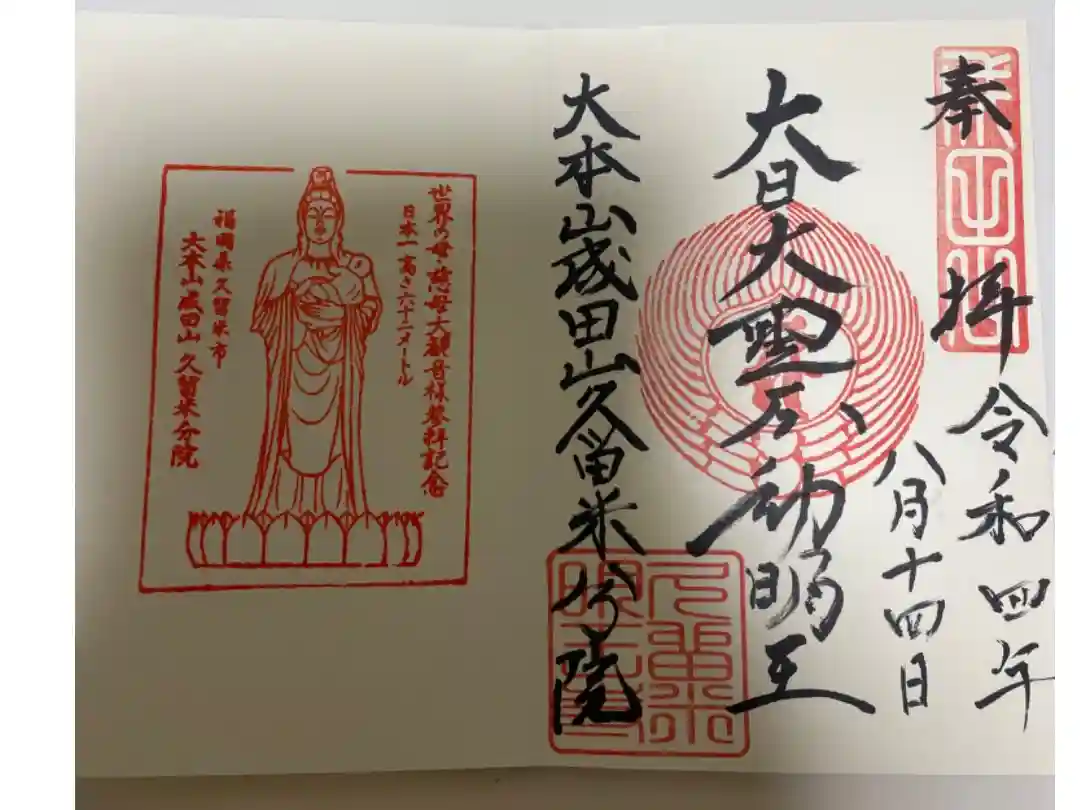 奉拝
令和四年
八月十四日
大日大霊不動明王
大本山成田山久留米分院
世界の母・慈母大観音様参拝記念
日本一高さ六十二メートル
福岡県久留米市
大本山成田山久留米分院